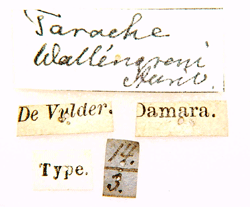 Tarache
Wallengreni
Auriv.
De Vylder. Damara.
Type.
14.
3.